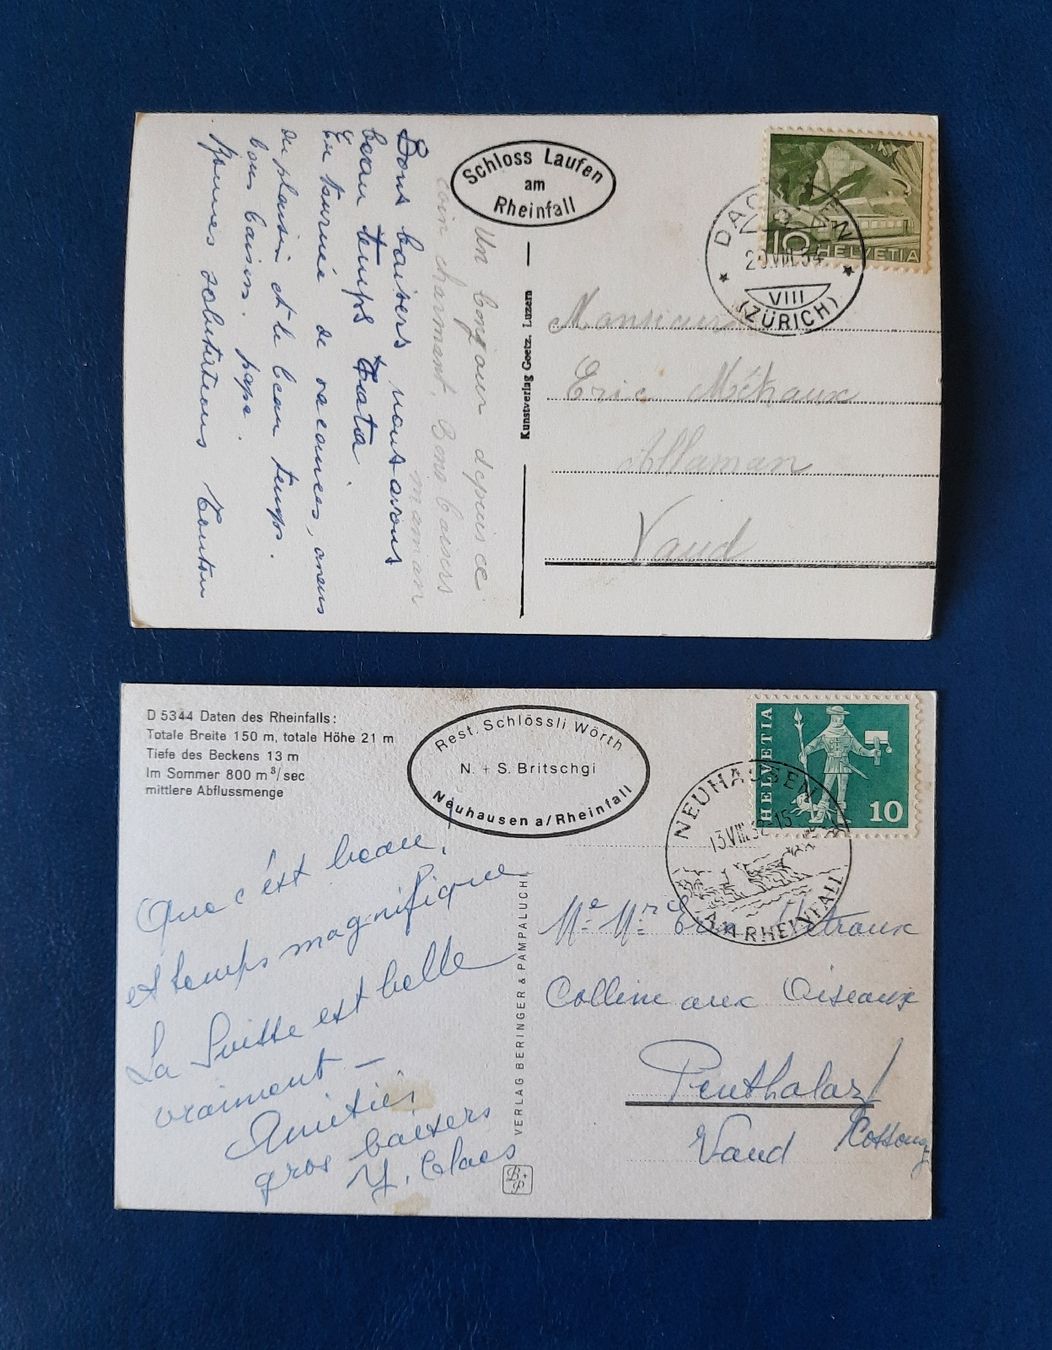 Schloss Laufen
am
Rheinfall
DACHSEN
VIII
(ZÜRICH)
10 HELVETIA
Un bonjour depuis ce
coin charmant. Bons baisers
maman
Bons baisers nous avons
beau temps Tata
En tournée de vacances, avons
du plaisir et le beau temps.
bons baisers. papa.
Bonnes salutations Tonton
Kunstverlag Goetz. Luzern
Monsieur
Eric Métraux
Allaman
Vaud
D 5344 Daten des Rheinfalls:
Totale Breite 150 m, totale Höhe 21 m
Tiefe des Beckens 13 m
Im Sommer 800 m³/sec
mittlere Abflussmenge
Rest. Schlössli Wörth
N. + S. Britschgi
Neuhausen a/Rheinfall
HELVETIA
10
NEUHAUSEN
13.VIII.
AM RHEINFALL
Que c'est beau,
et temps magnifique
La Suisse est belle
vraiment –
Amitiés
gros baisers
Y. Claes
VERLAG BERINGER & PAMPALUCHI
B+P
Me Mr Eric Métraux
Colline aux Oiseaux
Penthalaz/
Cossonay
Vaud